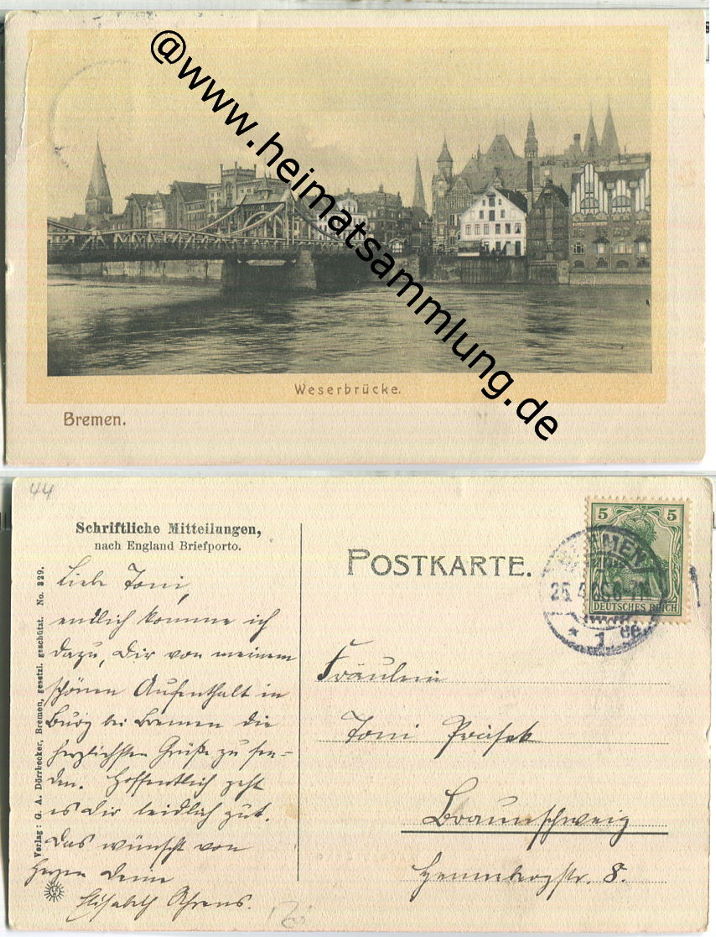 @www.heimatsammlung.de
Weserbrücke.
Bremen.
44
Schriftliche Mitteilungen,
nach England Briefporto.
POSTKARTE.
5 5
DEUTSCHES REICH
BREMEN
25.4.06.6-7N
* 1 ee
Verlag: G. A. Dörrbecker, Bremen, gesetzl. geschützt. No. 329.
Liebe Toni,
endlich komme ich
dazu, Dir von meinem
schönen Aufenthalt in
Burg bei Bremen die
herzlichsten Grüße zu sen-
den. Hoffentlich geht
es Dir leidlich gut.
Das wünscht von
Herzen Deine
Elisabeth Ahrens.
Fräulein
Toni
Braunschweig
Hennebergstr. 8.